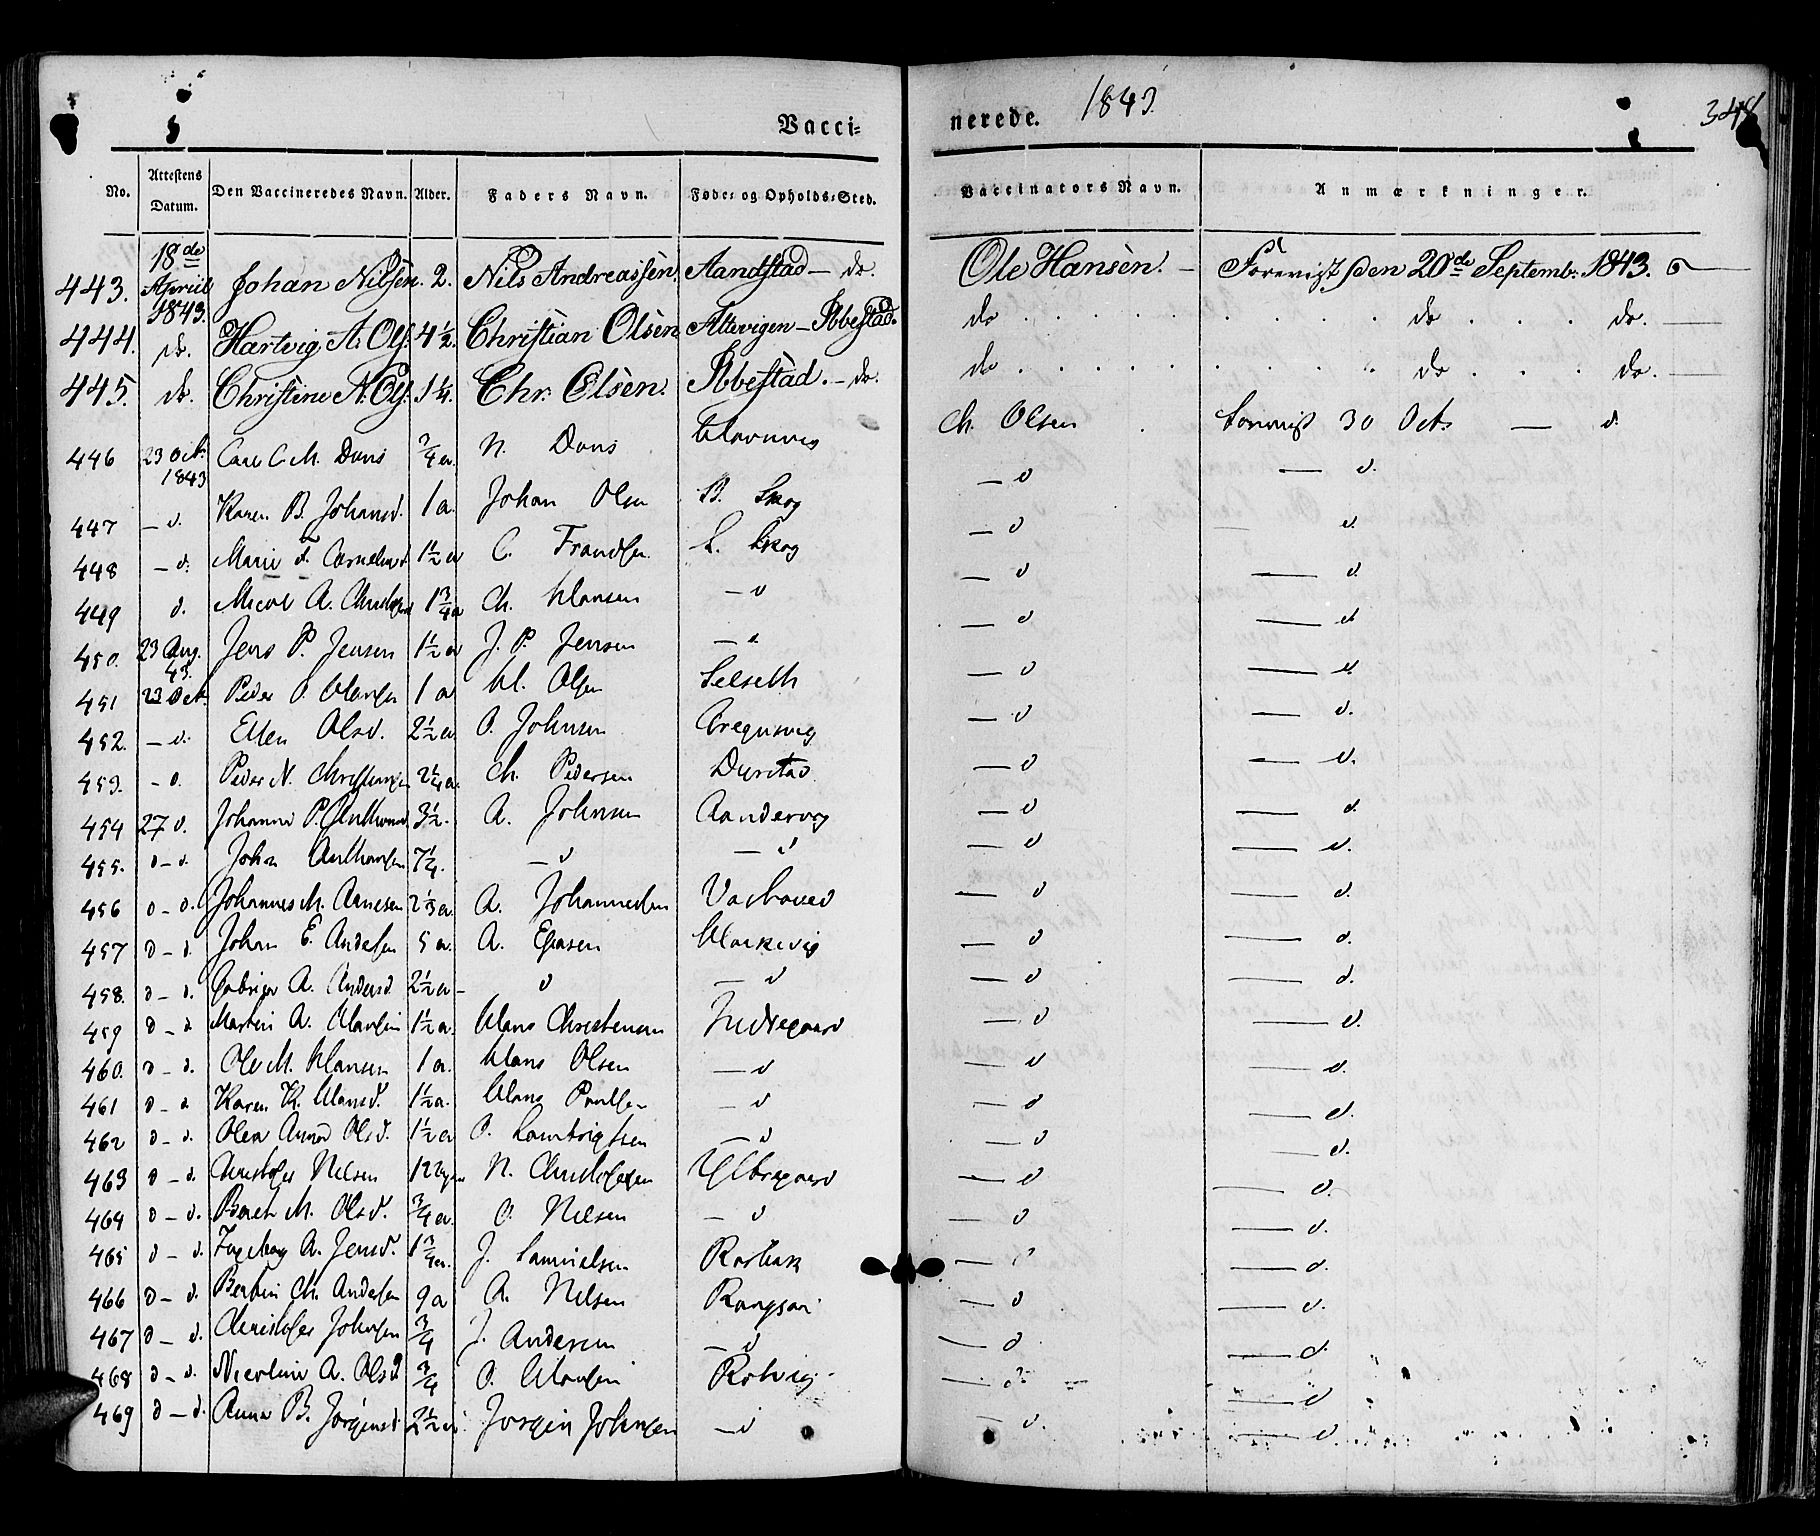 Vacci-
nerede. 1843. 348
No. Attestens Datum. Den Vaccineredes Navn. Alder. Faders Navn. Føde- og Opholds-Sted. Vaccinators Navn. Anmærkninger.
443. 18de Apriil 1843. Johan Nilsen. 2. Nils Andreassen. Aandstad — do. Ole Hansen. — Foreviist den 20de Septemb: 1843.
444. do. Hartvig A. Ols. 4½. Christian Olsen Attevigen — Ibbestad. do do do.
445. do. Christine N. Ols. 1¼. Chr. Olsen. Ibbestad. — do. do do do.
446 23 Oct. 1843 Carl C. M. Dons ¾ a. N. Dons Havnvig Ch. Olsen 30 Oct. — d.
447 — d. Karen B. Johansd. 1 a. Johan Olsen B. Skog — d — d.
448 — d. Marie 1½ a C. Frandsen L. Skog — d d.
449 d. A. 1¾ a Ch. Hansen — d — d — d.
450. 23 Aug. 43. Jens P. Jensen 1½ a J. P. Jensen — d — d — d
451 23 Oct. Peder O. Hansen 1 a H. Olsen Selseth — d — d.
452. — d. Ellen Olsd. 2½ a. O. Johnsen — d — d.
453. — d. Peder N. Christensen 2¼ a. Ch. Pedersen — d — d.
454 27 d. Johanna P. 3½. A. Johnsen Aandervog — d — d.
455. d — d. Johan 7¼. — d — d — d — d.
456 d — d. Johannes M. Arnesen 2⅓ a. A. Johannesen — d — d.
457 d — d. Johan E. Andersen 5 a. A. Harkevig — d — d.
458. d — d. A. Andersd. 2½ a — d — d — d — d.
459 d — d Martin A. Hansen 1½ a. Hans Christensen Indregaard — d — d.
460. d — d. Ole M. Hansen 1 a. Hans Olsen — d — d — d.
461 d — d Karen K. Hansd. 1½ a. Hans Paulsen — d — d — d.
462 d — d. Olea Anna Olsd. 1½ a O. Lambrigtsen — d — d — d.
463 d — d. Christofer Nilsen 12 N. Christofersen Ytbregaard — d — d.
464 d — d. Beret M. Olsd. ¾ a. O. Nilsen — d — d — d.
465 d — d. Ingeborg A. Jensd. 1¾ a. J. Samuelsen Rotbak — d.
466 d — d. M. Andersen 9 a A. Nilsen — d — d.
467 d — d. Christofer Johnsen ¾ J. Andersen — d — d — d.
468 d — d. Nicoline A. Olsd ¾ O. Hansen Rotvig — d — d
469 d — d. Anna B. Jørgensd. 2½ a. Jørgen Johnsen — d — d. — d.